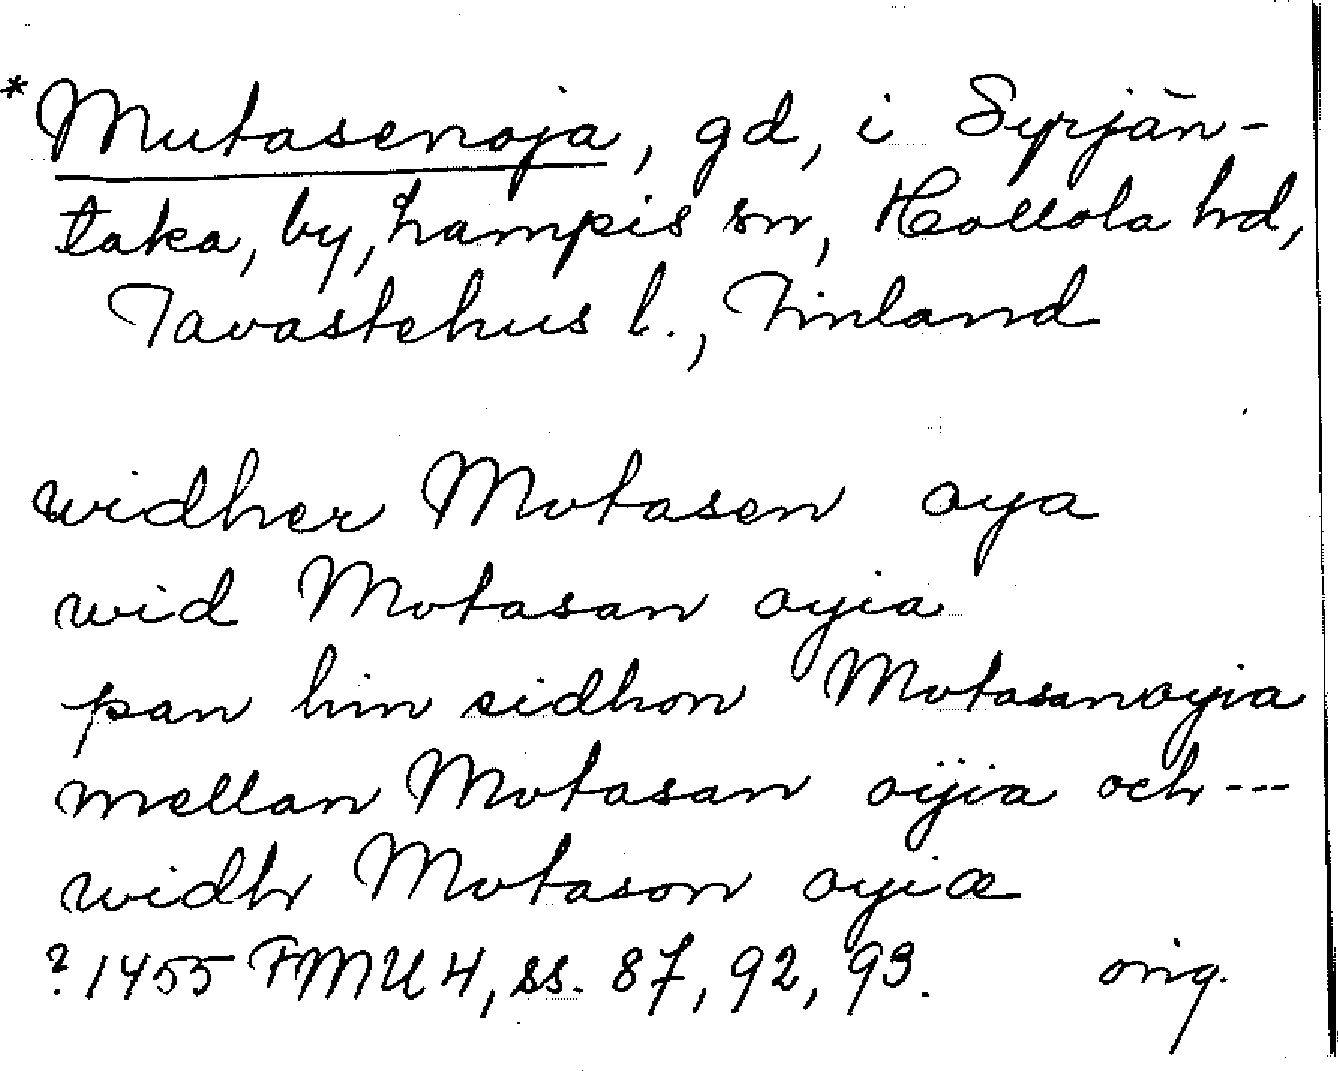 * Mutasenoja, gd, i Syrjän-
taka, by, Lampis sn, Hollola hd,
Tavastehus l., Finland
widher Motasen oya
wid Motasan oyia
pan hin sidhon Motasanoyia
mellan Motasan oijia och ---
widh Motason oyiæ
? 1455 FMU 4, ss. 87, 92, 93. orig.